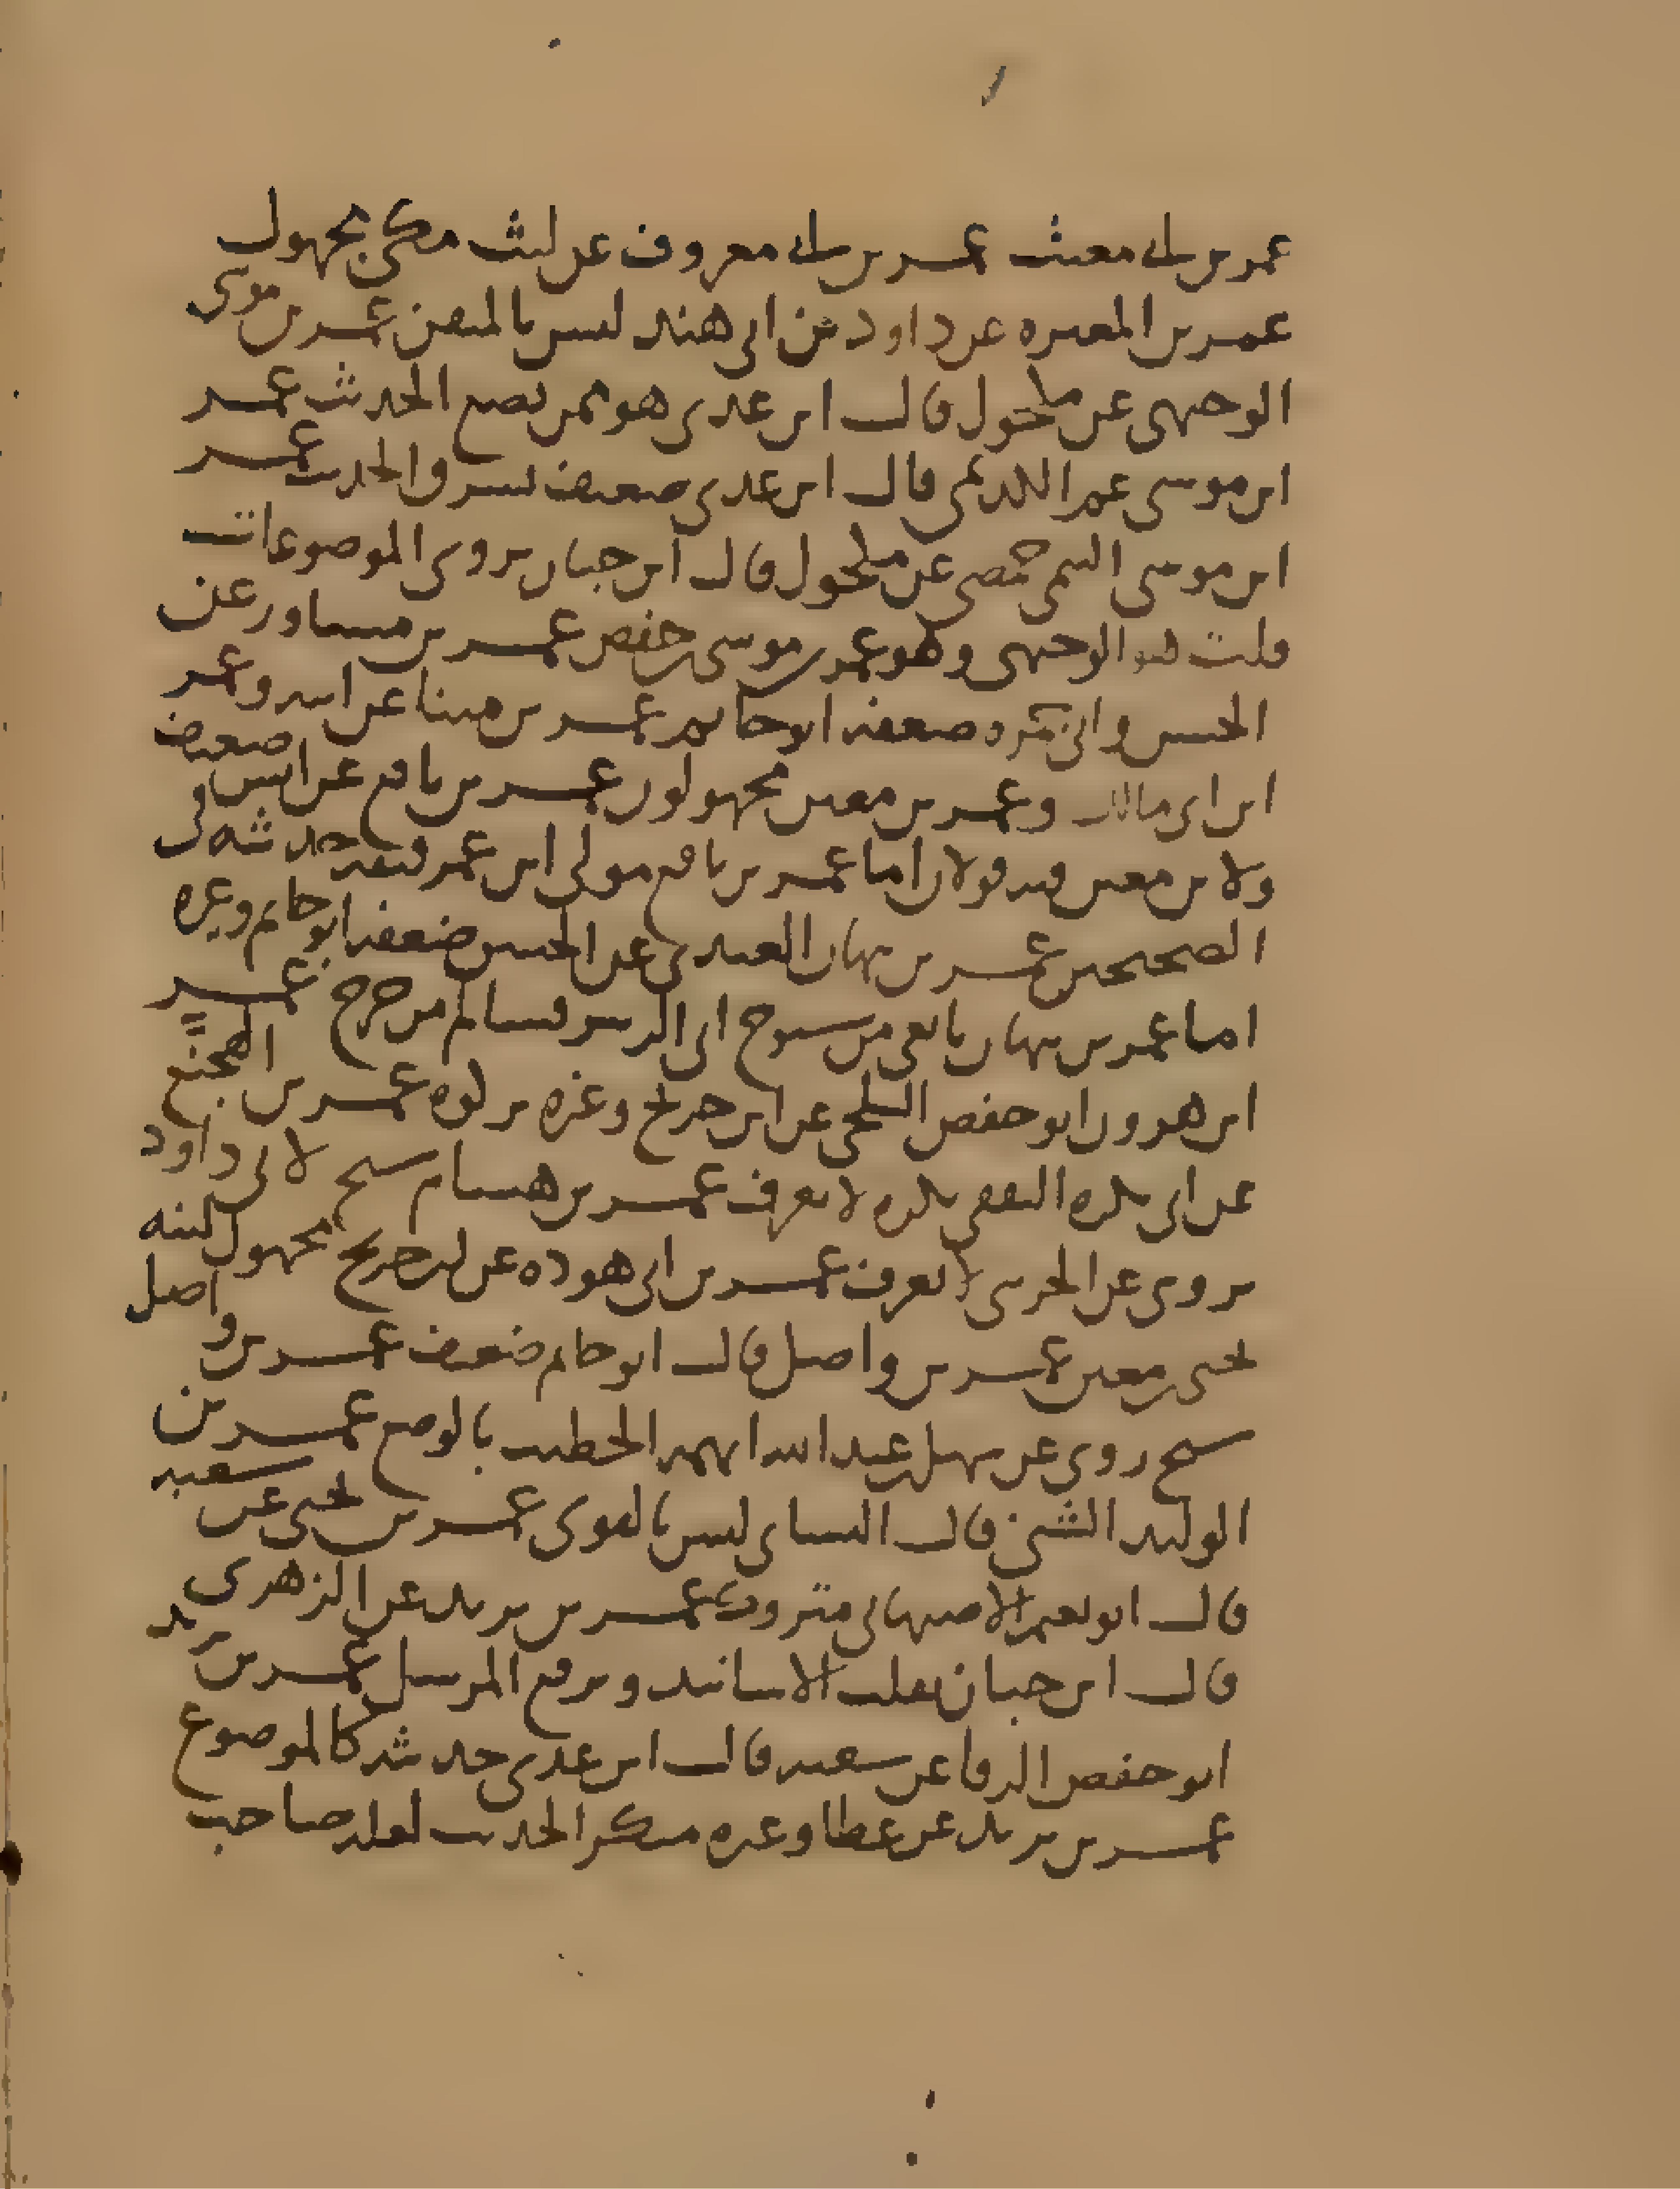 عمر بن ابي معتب عمر بن ابي معروف عن ليث مكي مجهول
عمر بن المغيره عن داود بن ابي هند ليس بالمتقن عمر بن موسى
الوجيهي عن مكحول قال ابن عدي هو ممن يضع الحديث عمر
ابن موسى الكديمي قال ابن عدي ضعيف يسرق الحديث عمر
ابن موسى التيمي حمصي عن مكحول قال ابن حبان يروي الموضوعات
قلت هو الوجيهي وهو عمر بن موسى بن حفص عمر بن مساور عن
الحسن وابي جمره ضعفه ابو حاتم عمر بن مينا عن ابيه وعمر
ابن ابي مالك وعمر بن معن مجهولون عمر بن نافع عن انس ضعيف
ولابن معين فيه قولان اما عمر بن نافع مولى ابن عمر فثقه حديثه في
الصحيحين عمر بن نبهان العبدي عن الحسن ضعفه ابو حاتم وغيره
اما عمر بن نبهان تابعي من شيوخ ابي الزبير فسالم من جرح عمر
ابن هرون ابو حفص البلخي عن ابن جريج وغيره تركوه عمر بن الهجنع
عن ابي بكره الثقفي بكره لا يعرف عمر بن هشام شيخ لابي داود
يروي عن الحرسي لا يعرف عمر بن ابي هوذه عن ابن جريج مجهول لينه
يحيى بن معين عمر بن واصل قال ابو حاتم ضعيف عمر بن واصل
شيخ روى عن سهل بن عبد الله اتهمه الخطيب بالوضع عمر بن
الوليد الشني قال النسائي ليس بالقوي عمر بن يحيى عن شعبه
قال ابو نعيم الاصبهاني متروك عمر بن يزيد عن الزهري
قال ابن حبان يقلب الاسانيد ويرفع المرسل عمر بن يزيد
ابو حفص الرفا عن شعبه قال ابن عدي حديثه كالموضوع
عمر بن يزيد عن عطا وغيره منكر الحديث لعله صاحب